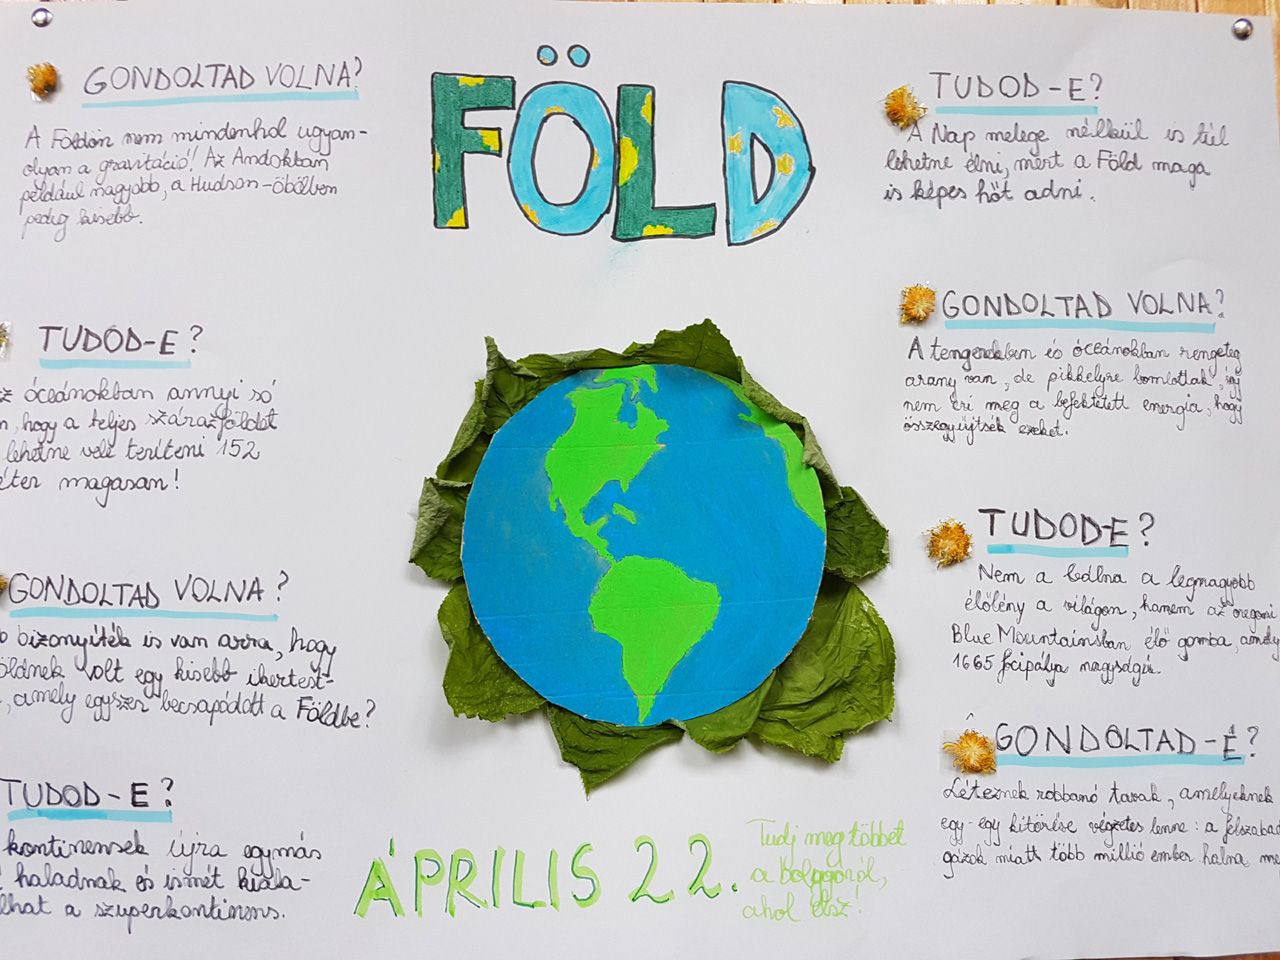 FÖLD
GONDOLTAD VOLNA?
A Földön nem mindenhol ugyan-
olyan a gravitáció! Az Andokban
például nagyobb, a Hudson-öbölben
pedig kisebb.
TUDOD-E?
óceánokban annyi só
, hogy a teljes szárazföldet
lehetne vele teríteni 152
magasan!
GONDOLTAD VOLNA?
bizonyíték is van arra, hogy
volt egy kisebb ikertest-
, amely egyszer becsapódott a Földbe?
TUDOD-E?
kontinensek újra egymás
haladnak és ismét kiala-
a szuperkontinens.
TUDOD-E?
A Nap melege nélkül is túl
lehetne élni, mert a Föld maga
is képes hőt adni.
GONDOLTAD VOLNA?
A tengerekben és óceánokban rengeteg
arany van, de pikkelyre bomlottak, így
nem éri meg a befektetett energia, hogy
összegyűjtsék ezeket.
TUDOD-E?
Nem a bálna a legnagyobb
élőlény a világon, hanem az oregoni
Blue Mountainsban élő gomba, amely
1665 focipálya nagyságú.
GONDOLTAD-É?
Léteznek robbanó tavak, amelyeknek
egy-egy kitörése végzetes lenne: a felszabad
gázok miatt több millió ember halna me
ÁPRILIS 22.
Tudj meg többet
a bolygóról,
ahol élsz!